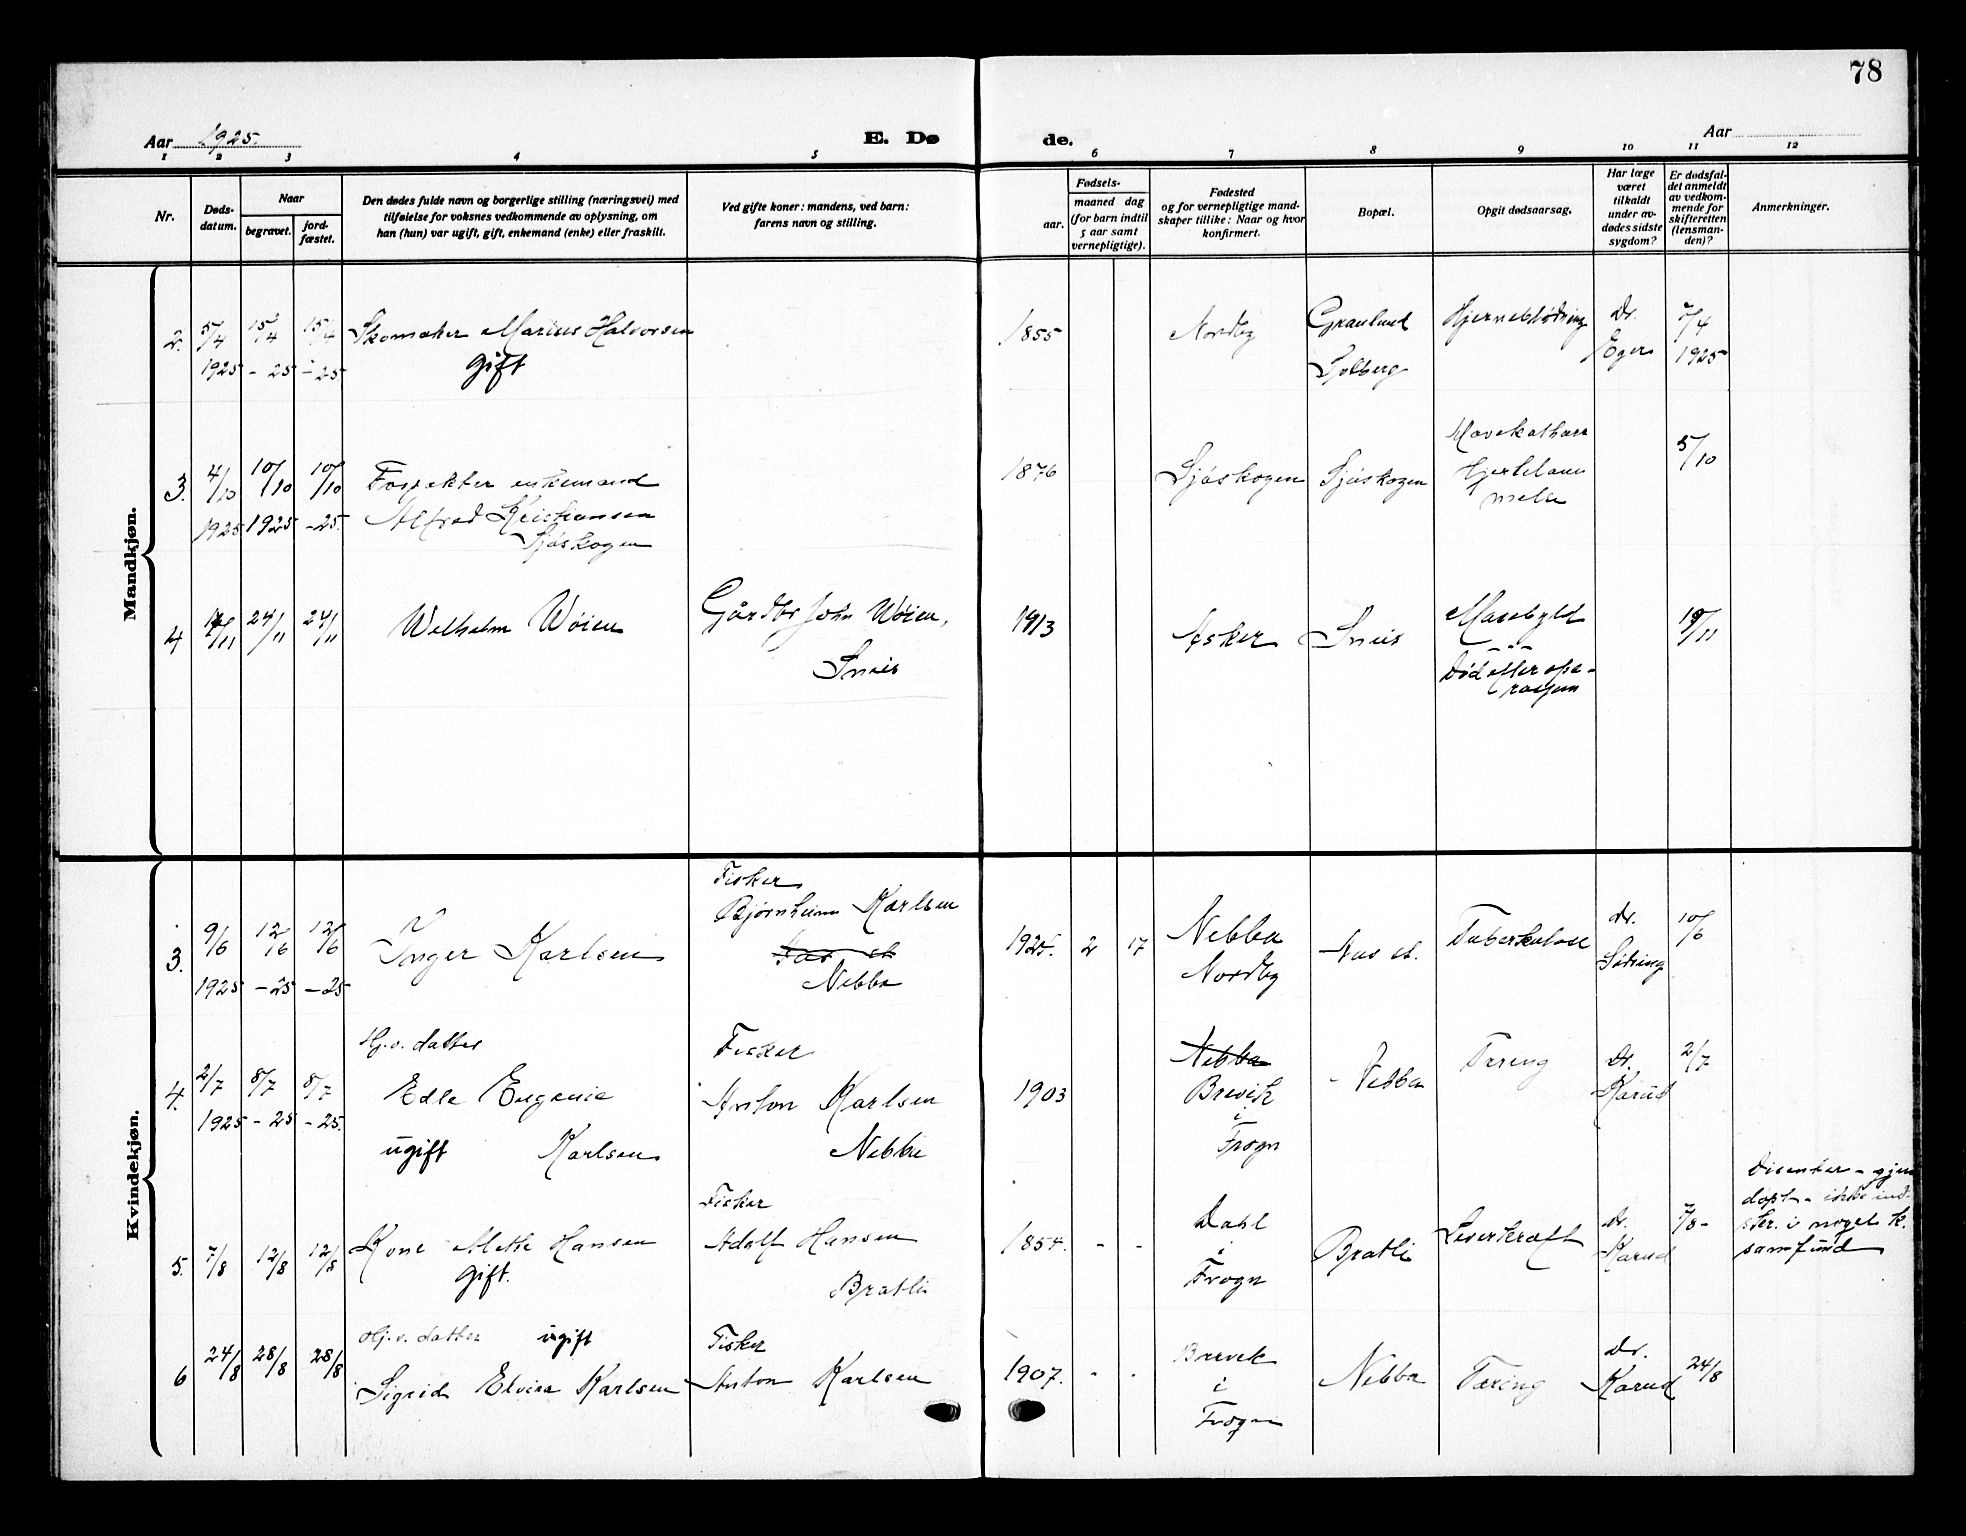 78
Aar 1925.
E. Dø
de.
Aar
1 2 3 4 5 6 7 8 9 10 11 12
Nr.
Døds-
datum.
Naar
begravet.
jord-
fæstet.
Den dødes fulde navn og borgerlige stilling (næringsvei) med
tilføielse for voksnes vedkommende av oplysning, om
han (hun) var ugift, gift, enkemand (enke) eller fraskilt.
Ved gifte koner: mandens, ved barn:
farens navn og stilling.
Fødsels-
aar.
maaned dag
(for barn indtil
5 aar samt
vernepligtige).
Fødested
og for vernepligtige mand-
skaper tillike: Naar og hvor
konfirmert.
Bopæl.
Opgit dødsaarsag.
Har læge
været
tilkaldt
under av-
dødes sidste
sygdom?
Er dødsfal-
det anmeldt
av vedkom-
mende for
skifteretten
(lensman-
den)?
Anmerkninger.
Mandkjøn.
2. 5/4 15/4 15/4 Skomaker Marius Halvorsen 1855 Nordby Granlund Hjerneblødning Dr. 7/4
1925 - 25 - 25 gift Solberg Eger 1925
3. 4/10 10/10 10/10 enkemand 1876 Sjøskogen Sjøskogen Mavekatharr 5/10
1925 1925 - 25. Alfred Kristiansen Hjertelam
Sjøskogen melse
4 24/11 24/11 Wilhelm Wøien Gårdbr John Wøien, 1913 Asker Sneis 19/11
Sneis Død efter ope-
rasjon
Kvindekjøn.
3. 9/6 12/6 12/6 Inger Karlsen Fisker 1925. 2 17 Nebba Nas st. Tuberkulose dr. 10/6
1925 - 25 - 25 Bjørnheim Karlsen Nordby Sødring
Nas st
Nebba
4. 2/7 8/7 8/7 Hj.v. datter Fisker 1903 Nebba Nebba Tæring Dr. 2/7
1925 - 25 - 25. Edle Eugenie Anton Karlsen Brevik Karud
ugift Karlsen Nebba i
Frogn
5. 7/8 12/8 12/8 Kone Mette Hansen Fisker 1854. - - Dahl Bratli Leverkræft dr. 7/8 - Disenter - gjen
gift. Adolf Hansen i Karud døpt - ikke ind-
Bratli Frogn skr. i noget k.
samfund
6 24/8 28/8 28/8 Hj.v. datter ugift Fisker 1907. - - Brevik Nebba Tæring Dr. 24/8
Sigrid Elvira Karlsen Anton Karlsen i Karud
Frogn